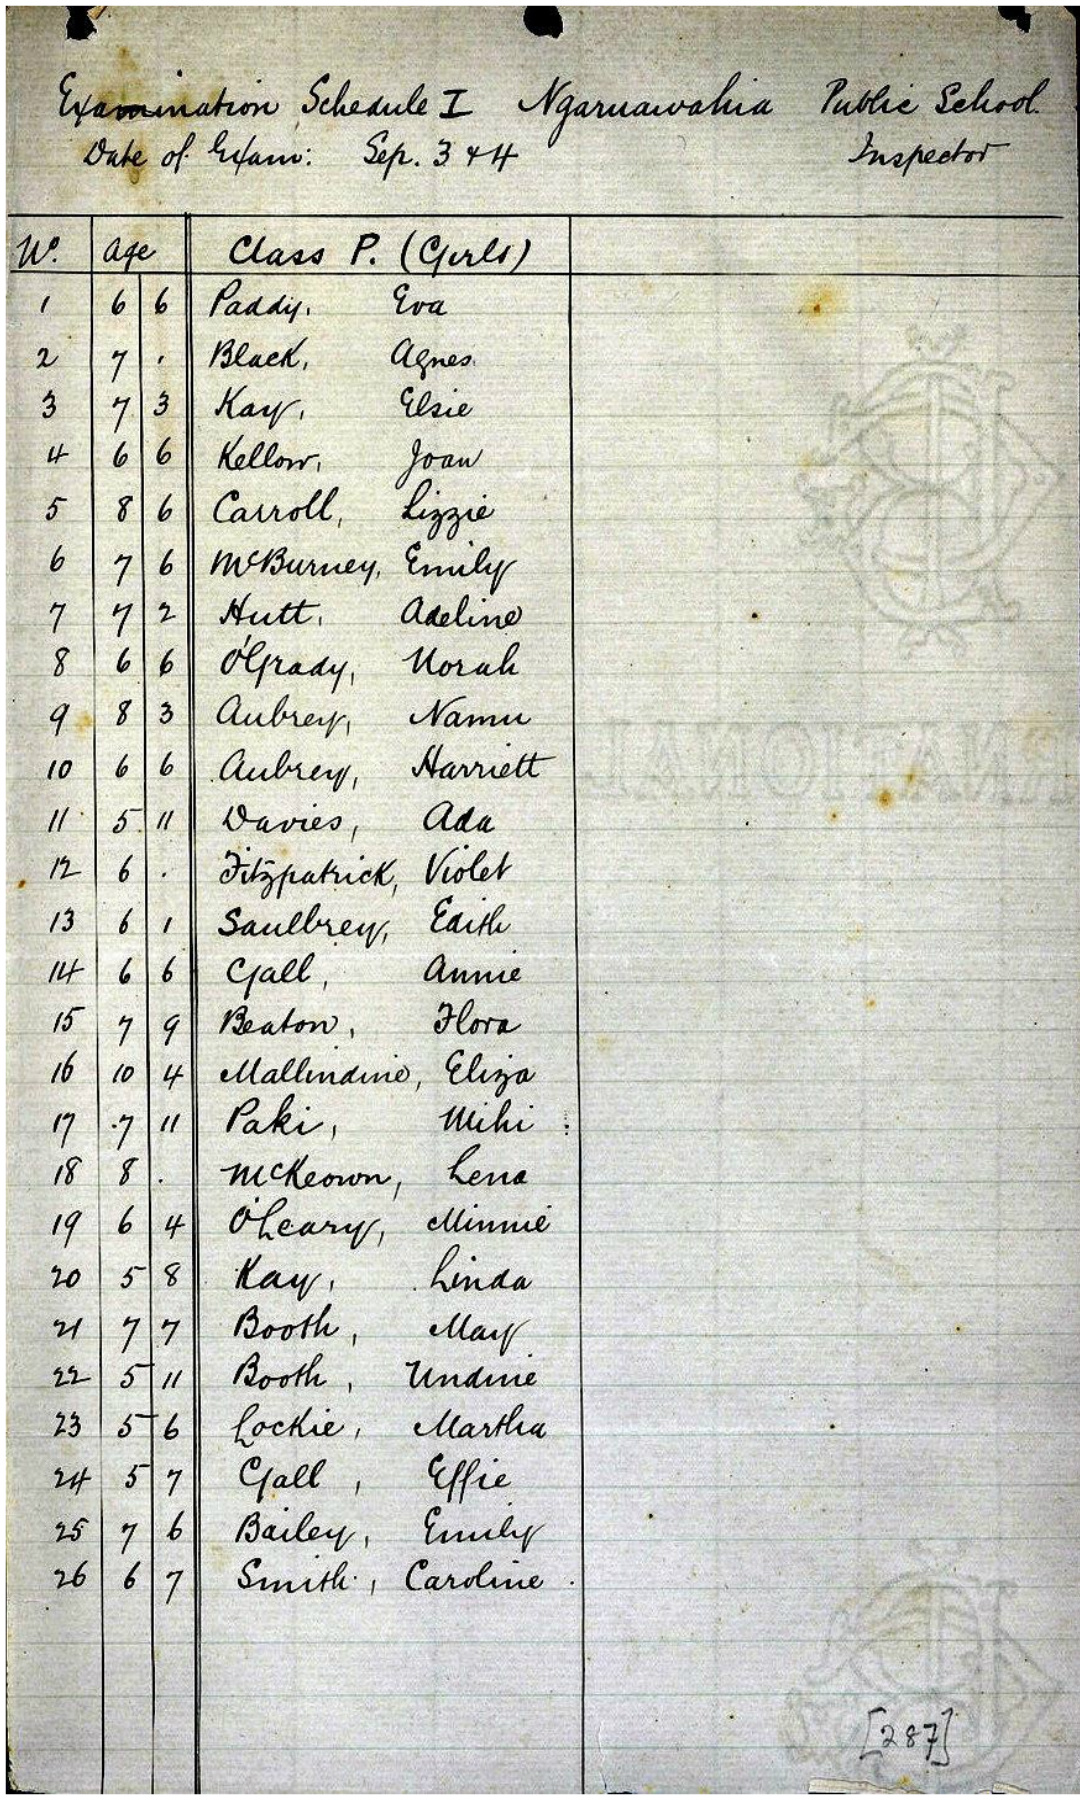 Examination Schedule I Ngaruawahia Public School.
Date of Exam: Sep. 3 & 4 Inspector
No. Age Class P. (Girls)
1 6 6 Paddy, Eva
2 7 . Black, Agnes.
3 7 3 Kay, Elsie
4 6 6 Kellow, Joan
5 8 6 Carroll, Lizzie
6 7 6 McBurney, Emily
7 7 2 Hutt, Adeline
8 6 6 O'Grady, Norah
9 8 3 Aubrey, Namu
10 6 6 Aubrey, Harriett
11 5 11 Davies, Ada
12 6 . Fitzpatrick, Violet
13 6 1 Saulbrey, Edith
14 6 6 Gall, Annie
15 7 9 Beaton, Flora
16 10 4 Mallindine, Eliza
17 7 11 Paki, Mihi
18 8 . McKeown, Lena
19 6 4 O'Leary, Minnie
20 5 8 Kay, Linda
21 7 7 Booth, May
22 5 11 Booth, Undine
23 5 6 Lockie, Martha
24 5 7 Gall, Effie
25 7 6 Bailey, Emily
26 6 7 Smith, Caroline
[287]